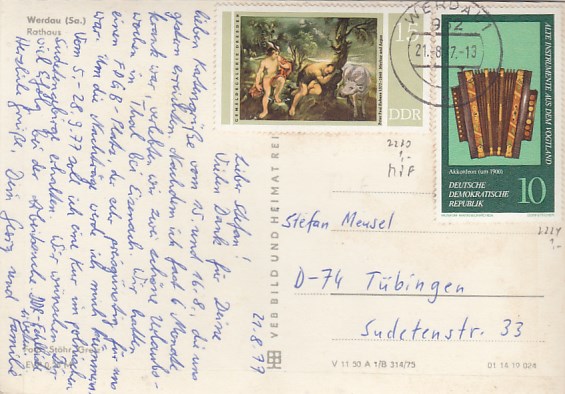 Werdau (Sa.)
Rathaus
21.8.77
Lieber Stefan!
Vielen Dank für Deine
lieben Kartengrüße vom 15. und 16.8., die uns
gestern erreichten. Nachdem ich fast 6 Monate
krank war, verlebten wir zwei schöne Urlaubs-
wochen in Thal bei Eisenach. Wir hatten
einen FDGB-Platz, der sehr preisgünstig für uns
war. Um die Nachträge werd ich mich kümmern.
Vom 5.-26.9.77 soll ich eine Kur im polnischen
erhalten. Wir wünschen Dir
viel Erfolg bei der
Herzliche Grüße Dein Georg und Familie
Foto: Stöhr, Greiz
VEB BILD UND HEIMAT REI
V 11 50 A 1/B 314/75
01 14 19 024
GEMÄLDEGALERIE DRESDEN
15
DDR
WERDAU
962
21.-8.77.-13
ALTE INSTRUMENTE AUS DEM VOGTLAND
Akkordeon (um 1900)
DEUTSCHE
DEMOKRATISCHE
REPUBLIK
10
2230
1,-
2224
1,-
Stefan Meusel
D-74 Tübingen
Sudetenstr. 33